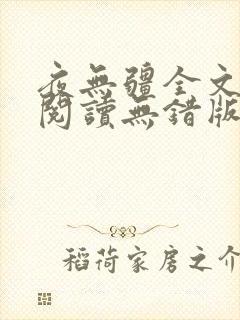 夜無疆全文
閱讀無錯版
稻荷家居之介